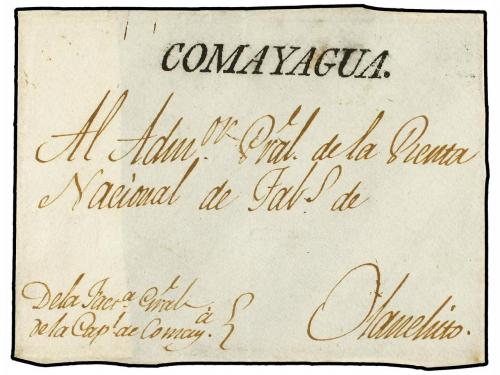 COMAYAGUA.
Al Adm.or Pral. de la Renta
Nacional de Tab.s de
Olanchito.
De la Facr.a Gral.
de la Cap.l de Comay.a